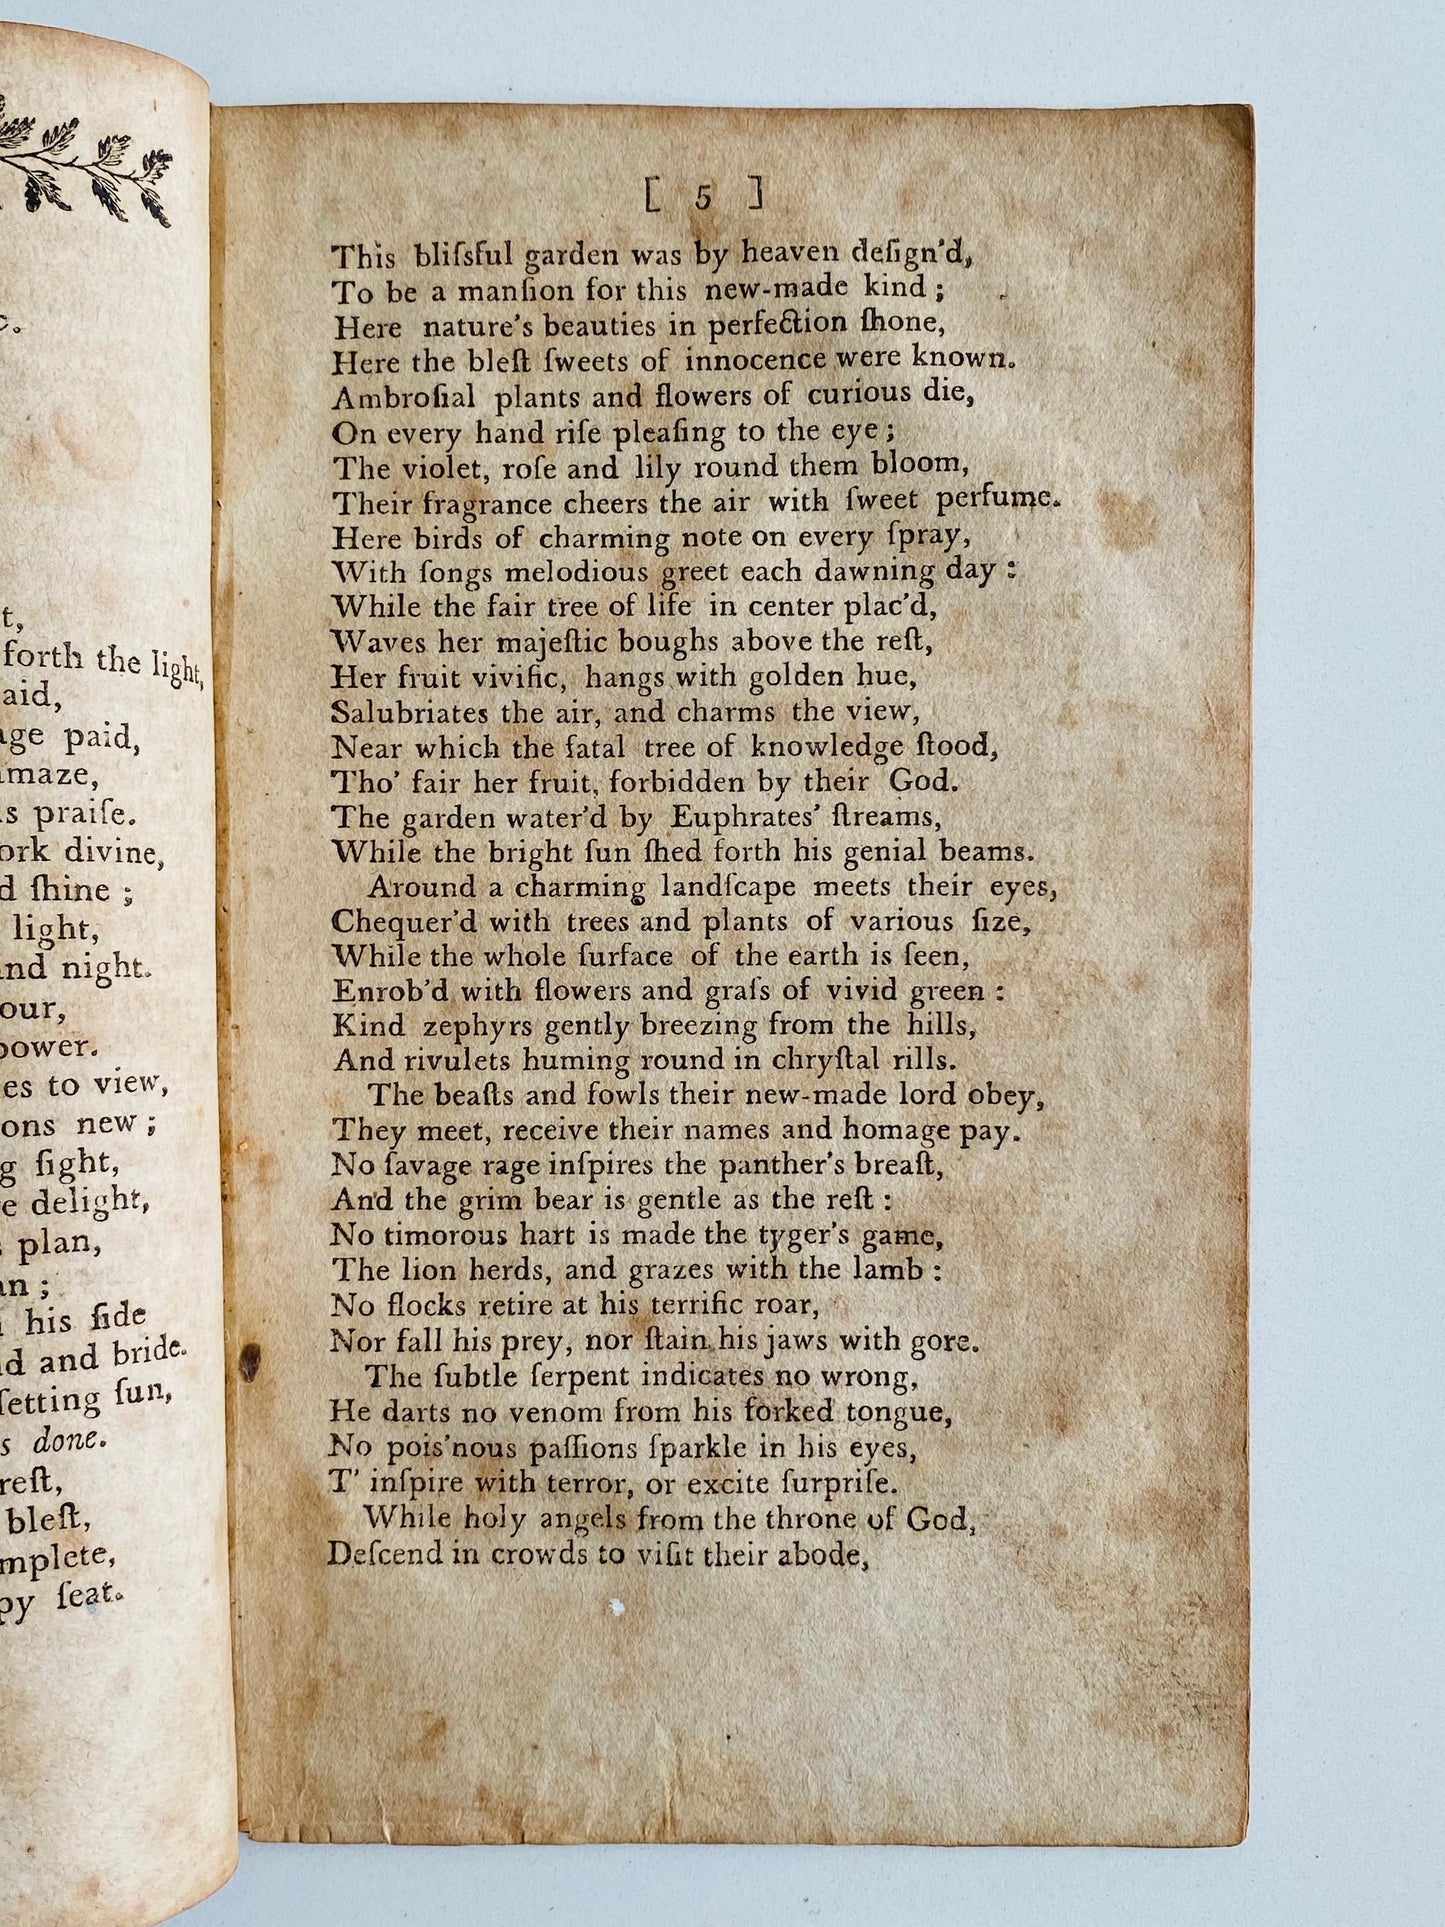 c.
t,
forth the light,
aid,
age paid,
amaze,
s praiſe.
ork divine,
d ſhine ;
light,
and night.
our,
power.
es to view,
ons new ;
g ſight,
e delight,
plan,
an ;
his ſide
d and bride.
ſetting ſun,
s done.
reſt,
bleſt,
mplete,
py ſeat.
[ 5 ]
This bliſsful garden was by heaven deſign'd,
To be a manſion for this new-made kind ;
Here nature's beauties in perfection ſhone,
Here the bleſt ſweets of innocence were known.
Ambroſial plants and flowers of curious die,
On every hand riſe pleaſing to the eye ;
The violet, roſe and lily round them bloom,
Their fragrance cheers the air with ſweet perfume.
Here birds of charming note on every ſpray,
With ſongs melodious greet each dawning day :
While the fair tree of life in center plac'd,
Waves her majeſtic boughs above the reſt,
Her fruit vivific, hangs with golden hue,
Salubriates the air, and charms the view,
Near which the fatal tree of knowledge ſtood,
Tho' fair her fruit, forbidden by their God.
The garden water'd by Euphrates' ſtreams,
While the bright ſun ſhed forth his genial beams.
Around a charming landſcape meets their eyes,
Chequer'd with trees and plants of various ſize,
While the whole ſurface of the earth is ſeen,
Enrob'd with flowers and graſs of vivid green :
Kind zephyrs gently breezing from the hills,
And rivulets huming round in chryſtal rills.
The beaſts and fowls their new-made lord obey,
They meet, receive their names and homage pay.
No ſavage rage inſpires the panther's breaſt,
And the grim bear is gentle as the reſt :
No timorous hart is made the tyger's game,
The lion herds, and grazes with the lamb :
No flocks retire at his terrific roar,
Nor fall his prey, nor ſtain his jaws with gore.
The ſubtle ſerpent indicates no wrong,
He darts no venom from his forked tongue,
No pois'nous paſſions ſparkle in his eyes,
T' inſpire with terror, or excite ſurpriſe.
While holy angels from the throne of God,
Deſcend in crowds to viſit their abode,